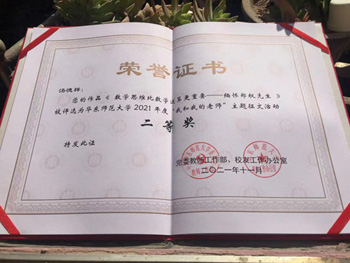 荣誉证书
您的作品《数学思维比数学运算更重要——缅怀郑权先生》
被评选为华东师范大学2021年度“我和我的老师”主题征文活动
二等奖
特发此证
党委教师工作部、校友工作办公室
二〇二一年十一月